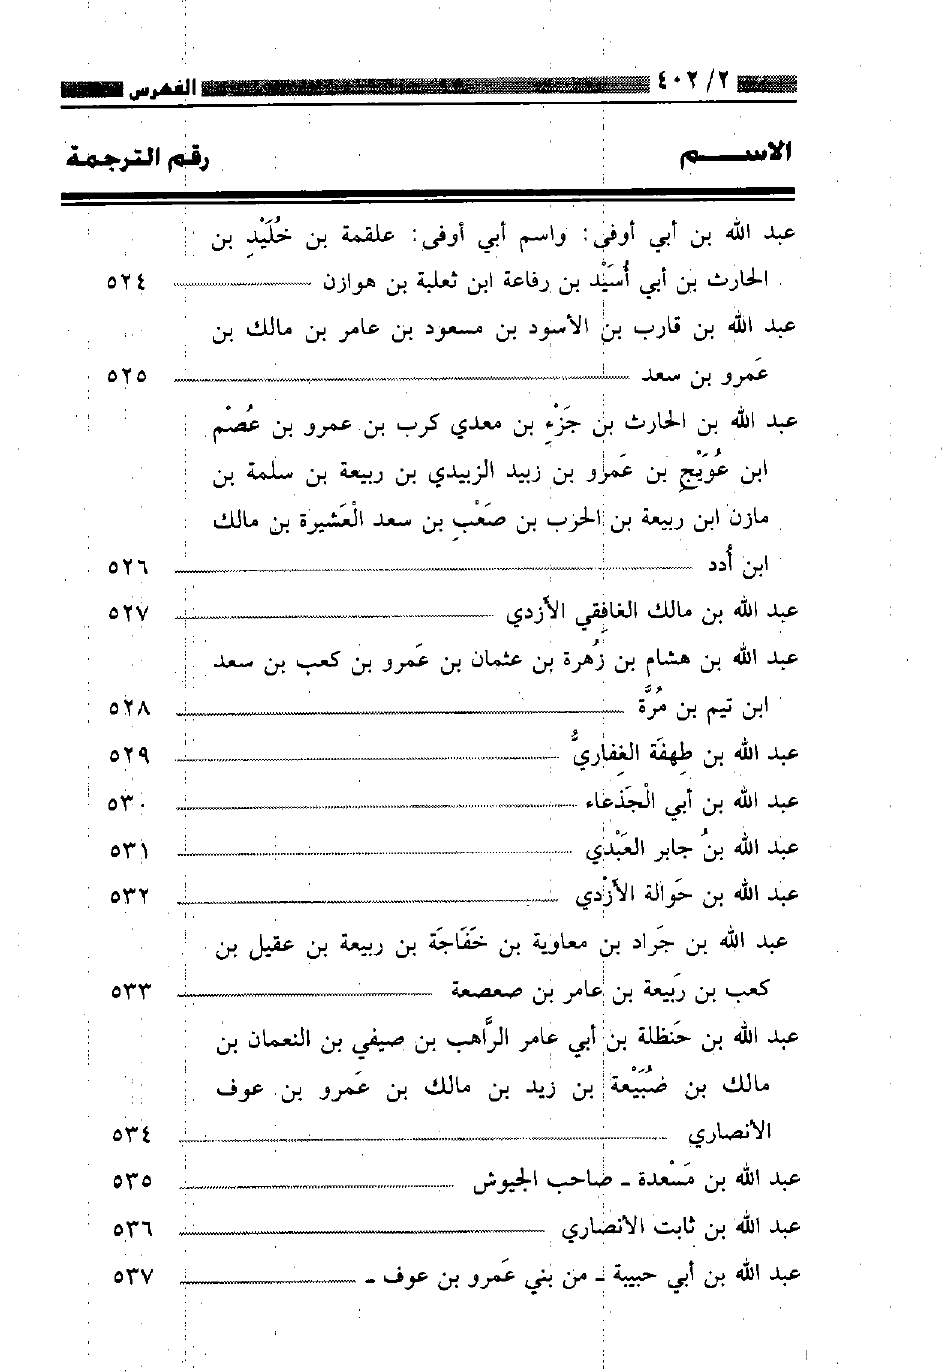 ٤٠٢/٢ الفهرس
الاســـم رقم الترجمة
عبد الله بن أبي أوفى: واسم أبي أوفى: علقمة بن خُلَيْدِ بن
الحارث بن أبي أُسَيْد بن رفاعة ابن ثعلبة بن هوازن ٥٢٤
عبد الله بن قارب بن الأسود بن مسعود بن عامر بن مالك بن
عَمرو بن سعد ٥٢٥
عبد الله بن الحارث بن جَزْءِ بن معدي كرب بن عمرو بن عُصْم
ابن عُوَيْجِ بن عَمرو بن زبيد الزبيدي بن ربيعة بن سلمة بن
مازن ابن ربيعة بن الحزب بن صَعْبِ بن سعد الْعَشيرة بن مالك
ابن أُدد ٥٢٦
عبد الله بن مالك الغافِقي الأزدي ٥٢٧
عبد الله بن هشام بن زُهرة بن عثمان بن عَمرو بن كعب بن سعد
ابن تيم بن مُرَّة ٥٢٨
عبد الله بن طِهفَة الغِفاريُّ ٥٢٩
عبد الله بن أبي الْجَذعاء ٥٣٠
عبد الله بنُ جابر العَبْدي ٥٣١
عبد الله بن حَوالة الأزْدي ٥٣٢
عبد الله بن جَراد بن معاوية بن خَفَاجَة بن ربيعة بن عقيل بن
كعب بن رَبيعة بن عامر بن صعصعة ٥٣٣
عبد الله بن حَنظلة بن أبي عامر الرَّاهب بن صيفي بن النعمان بن
مالك بن ضُبَيْعة بن زيد بن مالك بن عَمرو بن عوف
الأنصاري ٥٣٤
عبد الله بن مَسْعدة ـ صاحب الجيوش ٥٣٥
عبد الله بن ثابت الأنصاري ٥٣٦
عبد الله بن أبي حبيبة ـ من بني عَمرو بن عوف ـ ٥٣٧